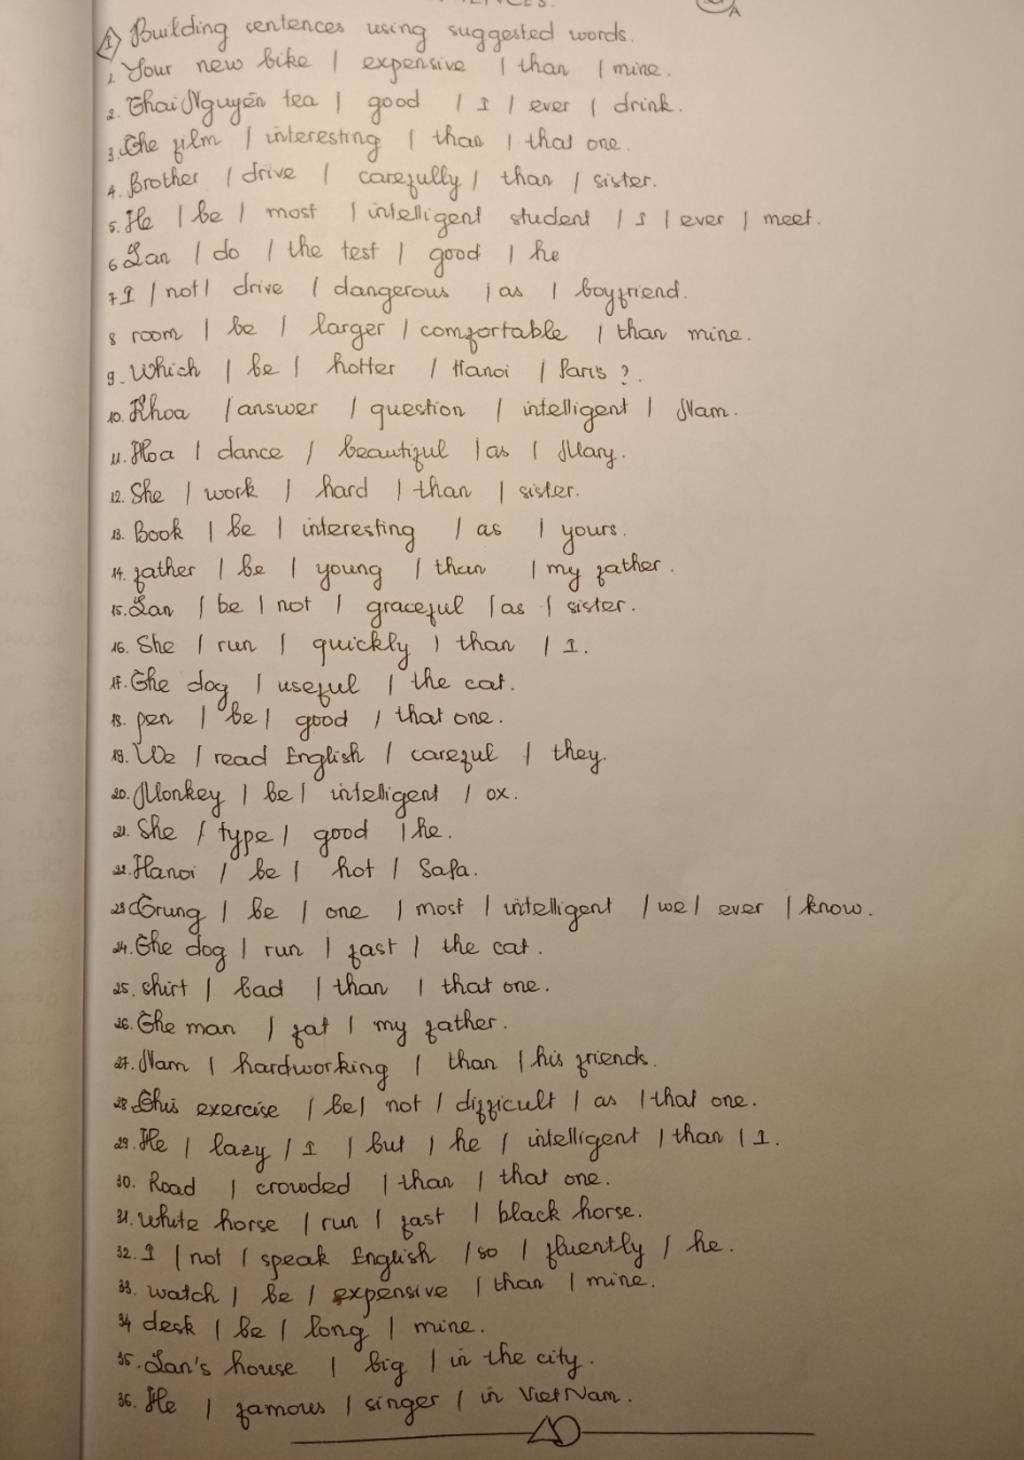 1 Building sentences using suggested words.
1. Your new bike / expensive / than / mine.
2. Thai Nguyên tea / good / I / ever / drink.
3. The film / interesting / than / that one.
4. Brother / drive / carefully / than / sister.
5. He / be / most / intelligent student / I / ever / meet.
6 Lan / do / the test / good / he
7 I / not / drive / dangerous / as / boyfriend.
8 room / be / larger / comfortable / than mine.
9. Which / be / hotter / Hanoi / Paris ?.
10. Khoa / answer / question / intelligent / Nam.
11. Hoa / dance / beautiful / as / Mary.
12. She / work / hard / than / sister.
13. Book / be / interesting / as / yours.
14. father / be / young / than / my father.
15. Lan / be / not / graceful / as / sister.
16. She / run / quickly / than / I.
17. The dog / useful / the cat.
18. pen / be / good / that one.
19. We / read English / careful / they.
20. Monkey / be / intelligent / ox.
21. She / type / good / he.
22. Hanoi / be / hot / Sapa.
23 Trung / be / one / most / intelligent / we / ever / know.
24. The dog / run / fast / the cat.
25. shirt / bad / than / that one.
26. The man / fat / my father.
27. Nam / hardworking / than / his friends.
28 This exercise / be / not / difficult / as / that one.
29. He / lazy / I / but / he / intelligent / than / I.
30. Road / crowded / than / that one.
31. White horse / run / fast / black horse.
32. I / not / speak English / so / fluently / he.
33. watch / be / expensive / than / mine.
34 desk / be / long / mine.
35. Lan's house / big / in the city.
36. He / famous / singer / in VietNam.